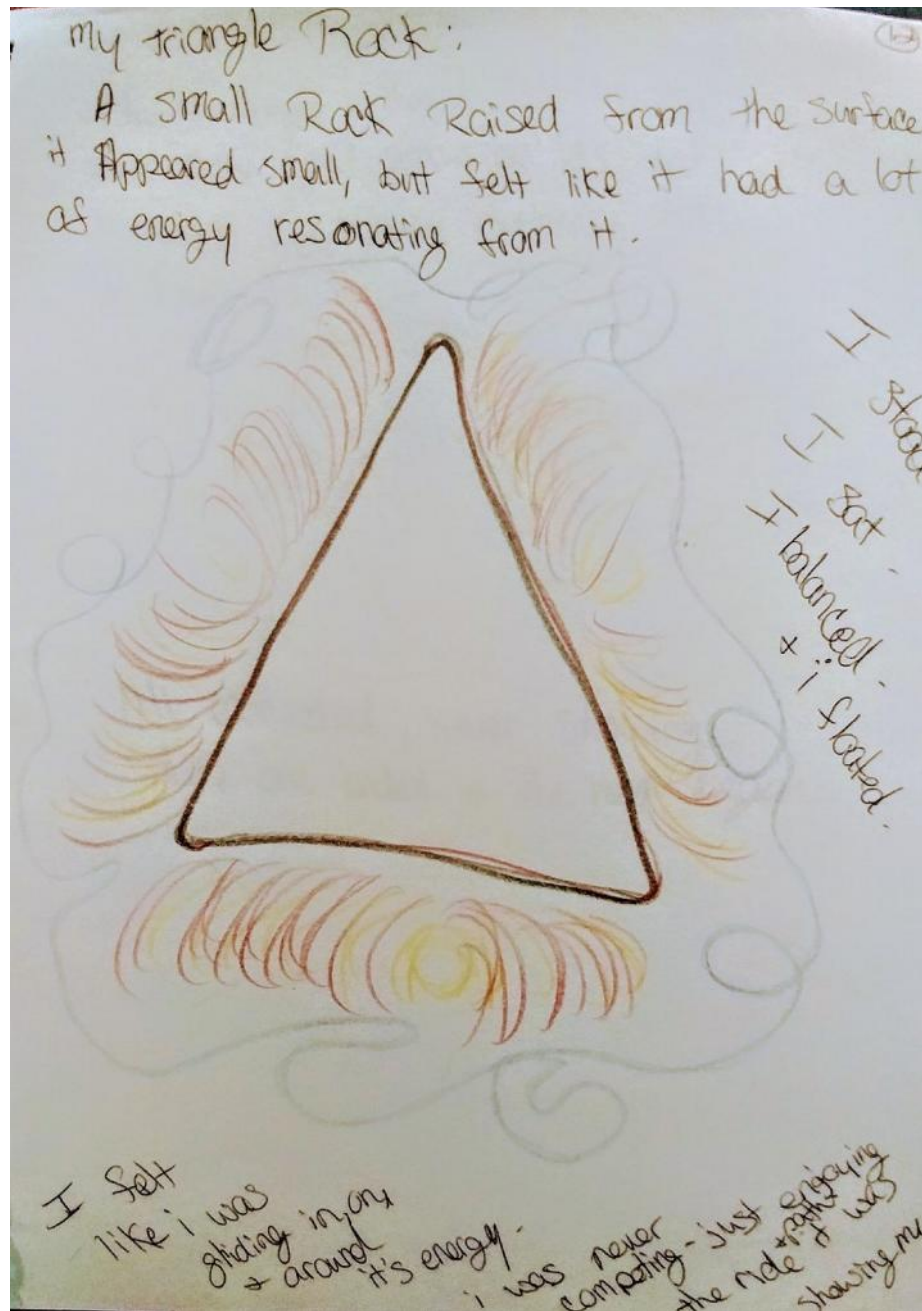 my triangle Rock:
A small Rock Raised from the surface
it Appeared small, butt felt like it had a lot
of energy resonating from it.
I stood
I sat.
I balanced.
x i floated.
I felt
like i was
gliding in, on,
+ around
it's energy.
i was never
competing - just enjoying
the ride + path it was
showing me